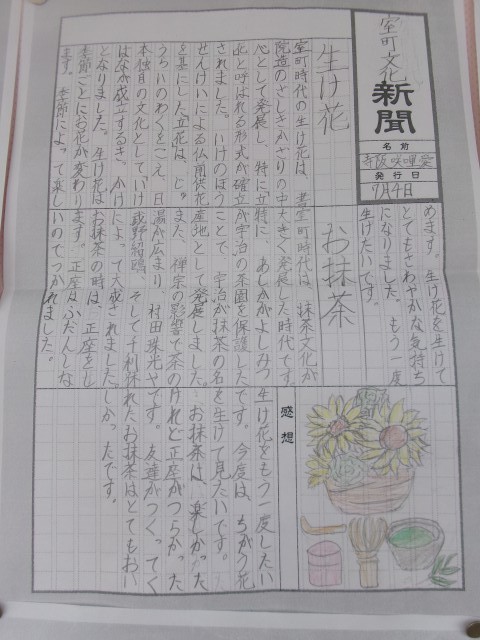 室町文化
新聞
名前
発行日
7月4日
生け花
室町時代の生け花は、書
院造のざしきかざりの中
心として発展し、特に立
花と呼ばれる形式が確立
されました。いけのぼう
せんけいによる仏前供花
を基にした立花は、じゅ
うらいのわくをこえ、日
本独自の文化としていけ
ばなが成立するきっかけ
となりました。生け花は
季節ごとにお花が変わり
ます。季節によって楽し
めます。生け花を生けて
とてもさわやかな気持ち
になりました。もう一度
生けたいです。
お抹茶
室町時代は、抹茶文化が
大きく発展した時代です。
特に、あしかがよしみつ
が宇治の茶園を保護した
ことで、宇治が抹茶の名
産地として発展しました。
また、禅宗の影響で茶の
湯が広まり、村田珠光や
武野紹鴎、そして千利休
によって大成されました。
お抹茶の時は、正座をし
ます。正座はふだんしな
いのでつかれました。
感想
生け花をもう一度したい
です。今度は、ちがう花
を生けて見たいです。
お抹茶は、楽しかった
けれど正座がつらかった
です。友達がつくってく
れたお抹茶はとてもおい
しかったです。